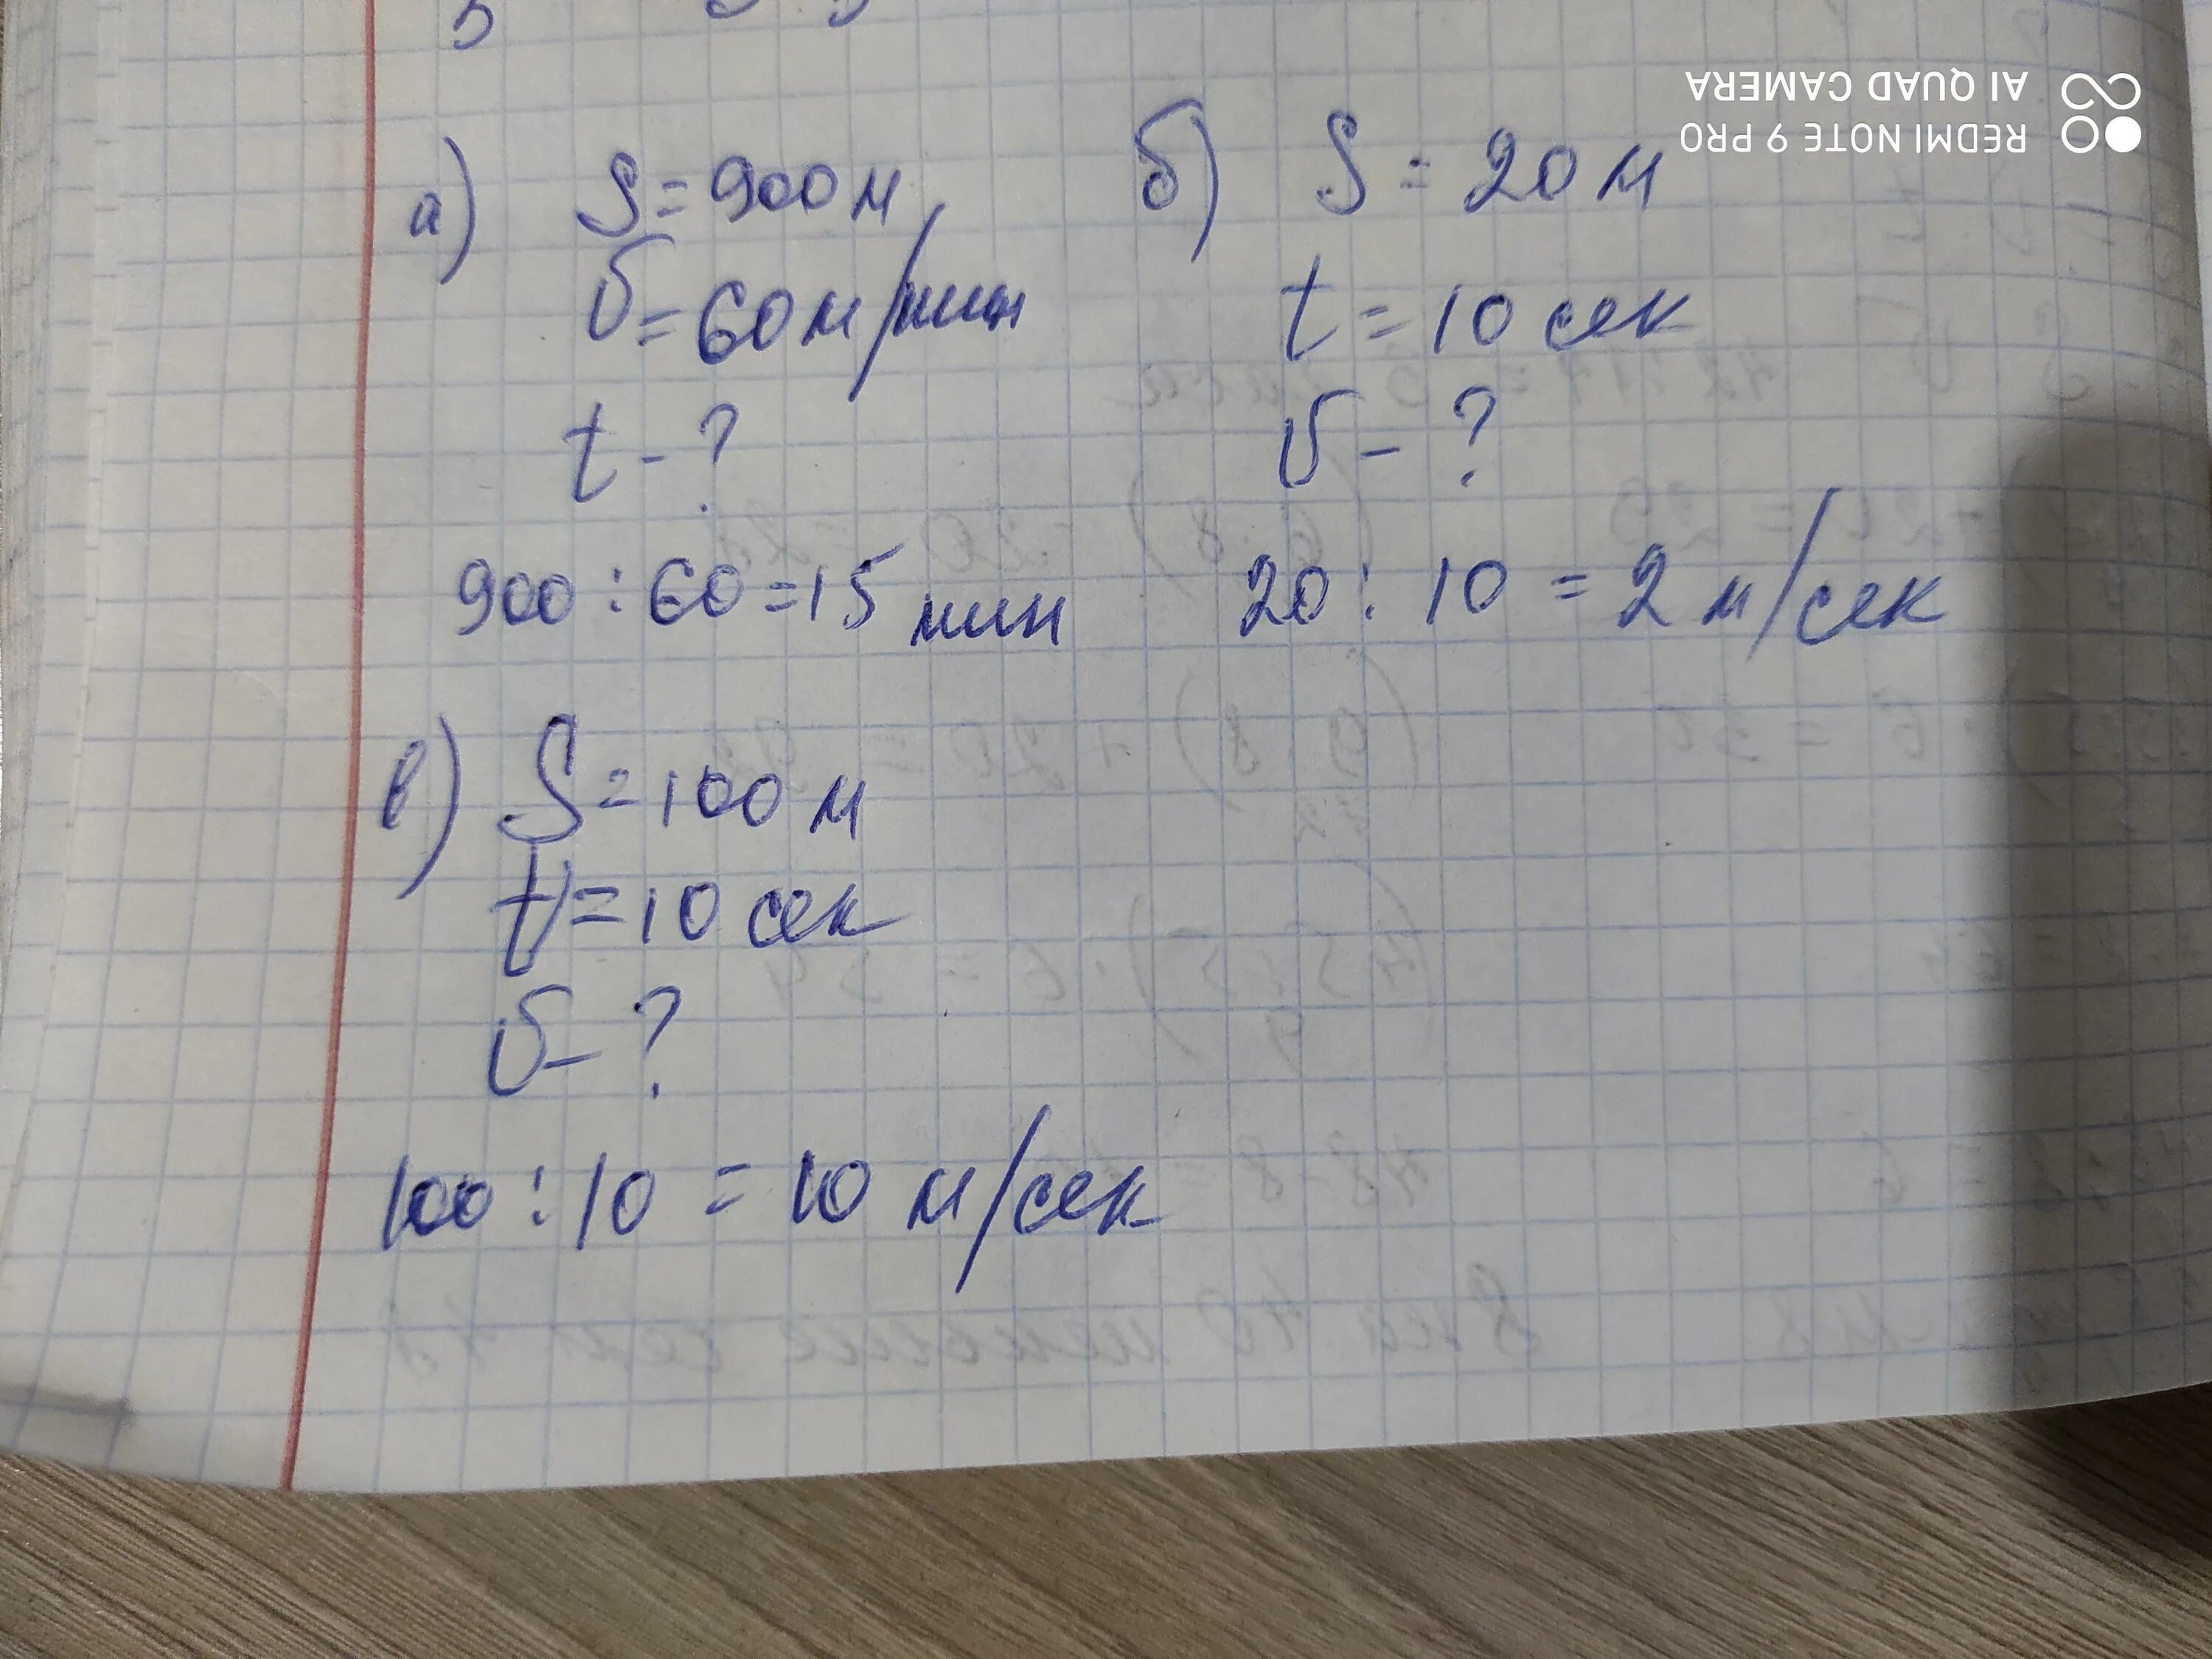 а) S = 900 м
υ = 60 м/мин
t - ?
900 : 60 = 15 мин
б) S = 20 м
t = 10 сек
υ - ?
20 : 10 = 2 м/сек
в) S = 100 м
t = 10 сек
υ - ?
100 : 10 = 10 м/сек
REDMI NOTE 9 PRO
AI QUAD CAMERA